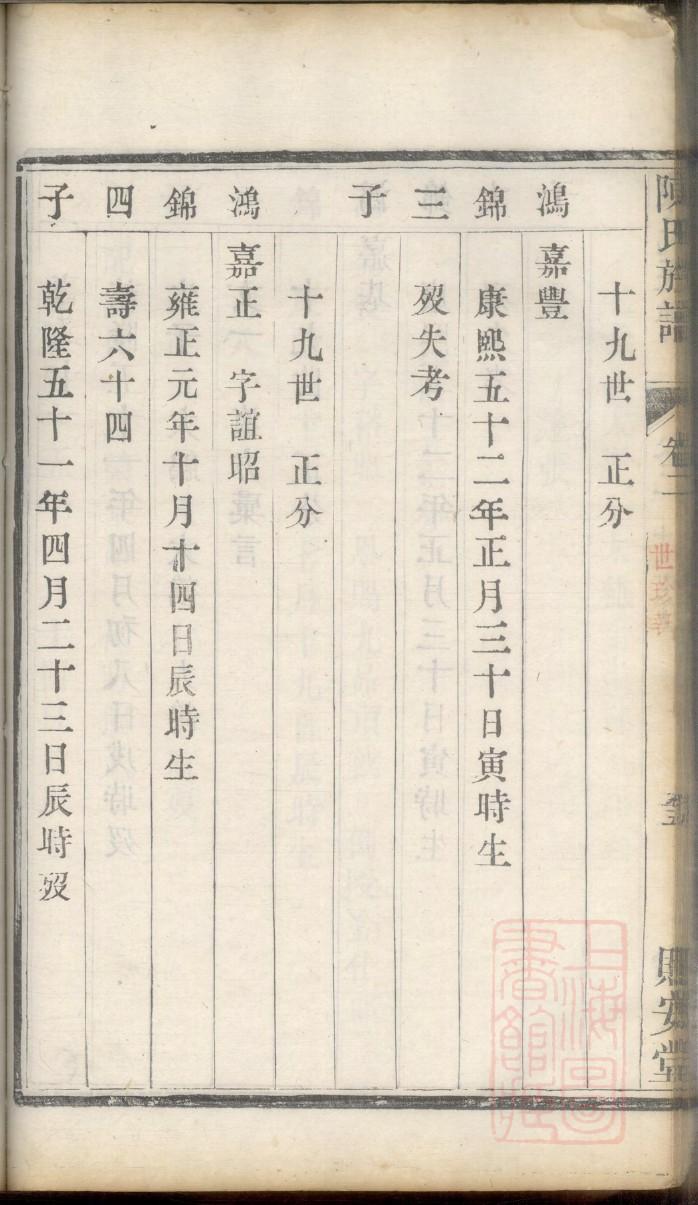 陳氏族譜 卷二 世珍華 熙安堂
十九世 正分
鴻 嘉豐
錦 康熙五十二年正月三十日寅時生
三 歿失考
子
十九世 正分
鴻 嘉正 字誼昭
錦 雍正元年十月十四日辰時生
四 壽六十四
子 乾隆五十一年四月二十三日辰時歿
上海圖書館藏